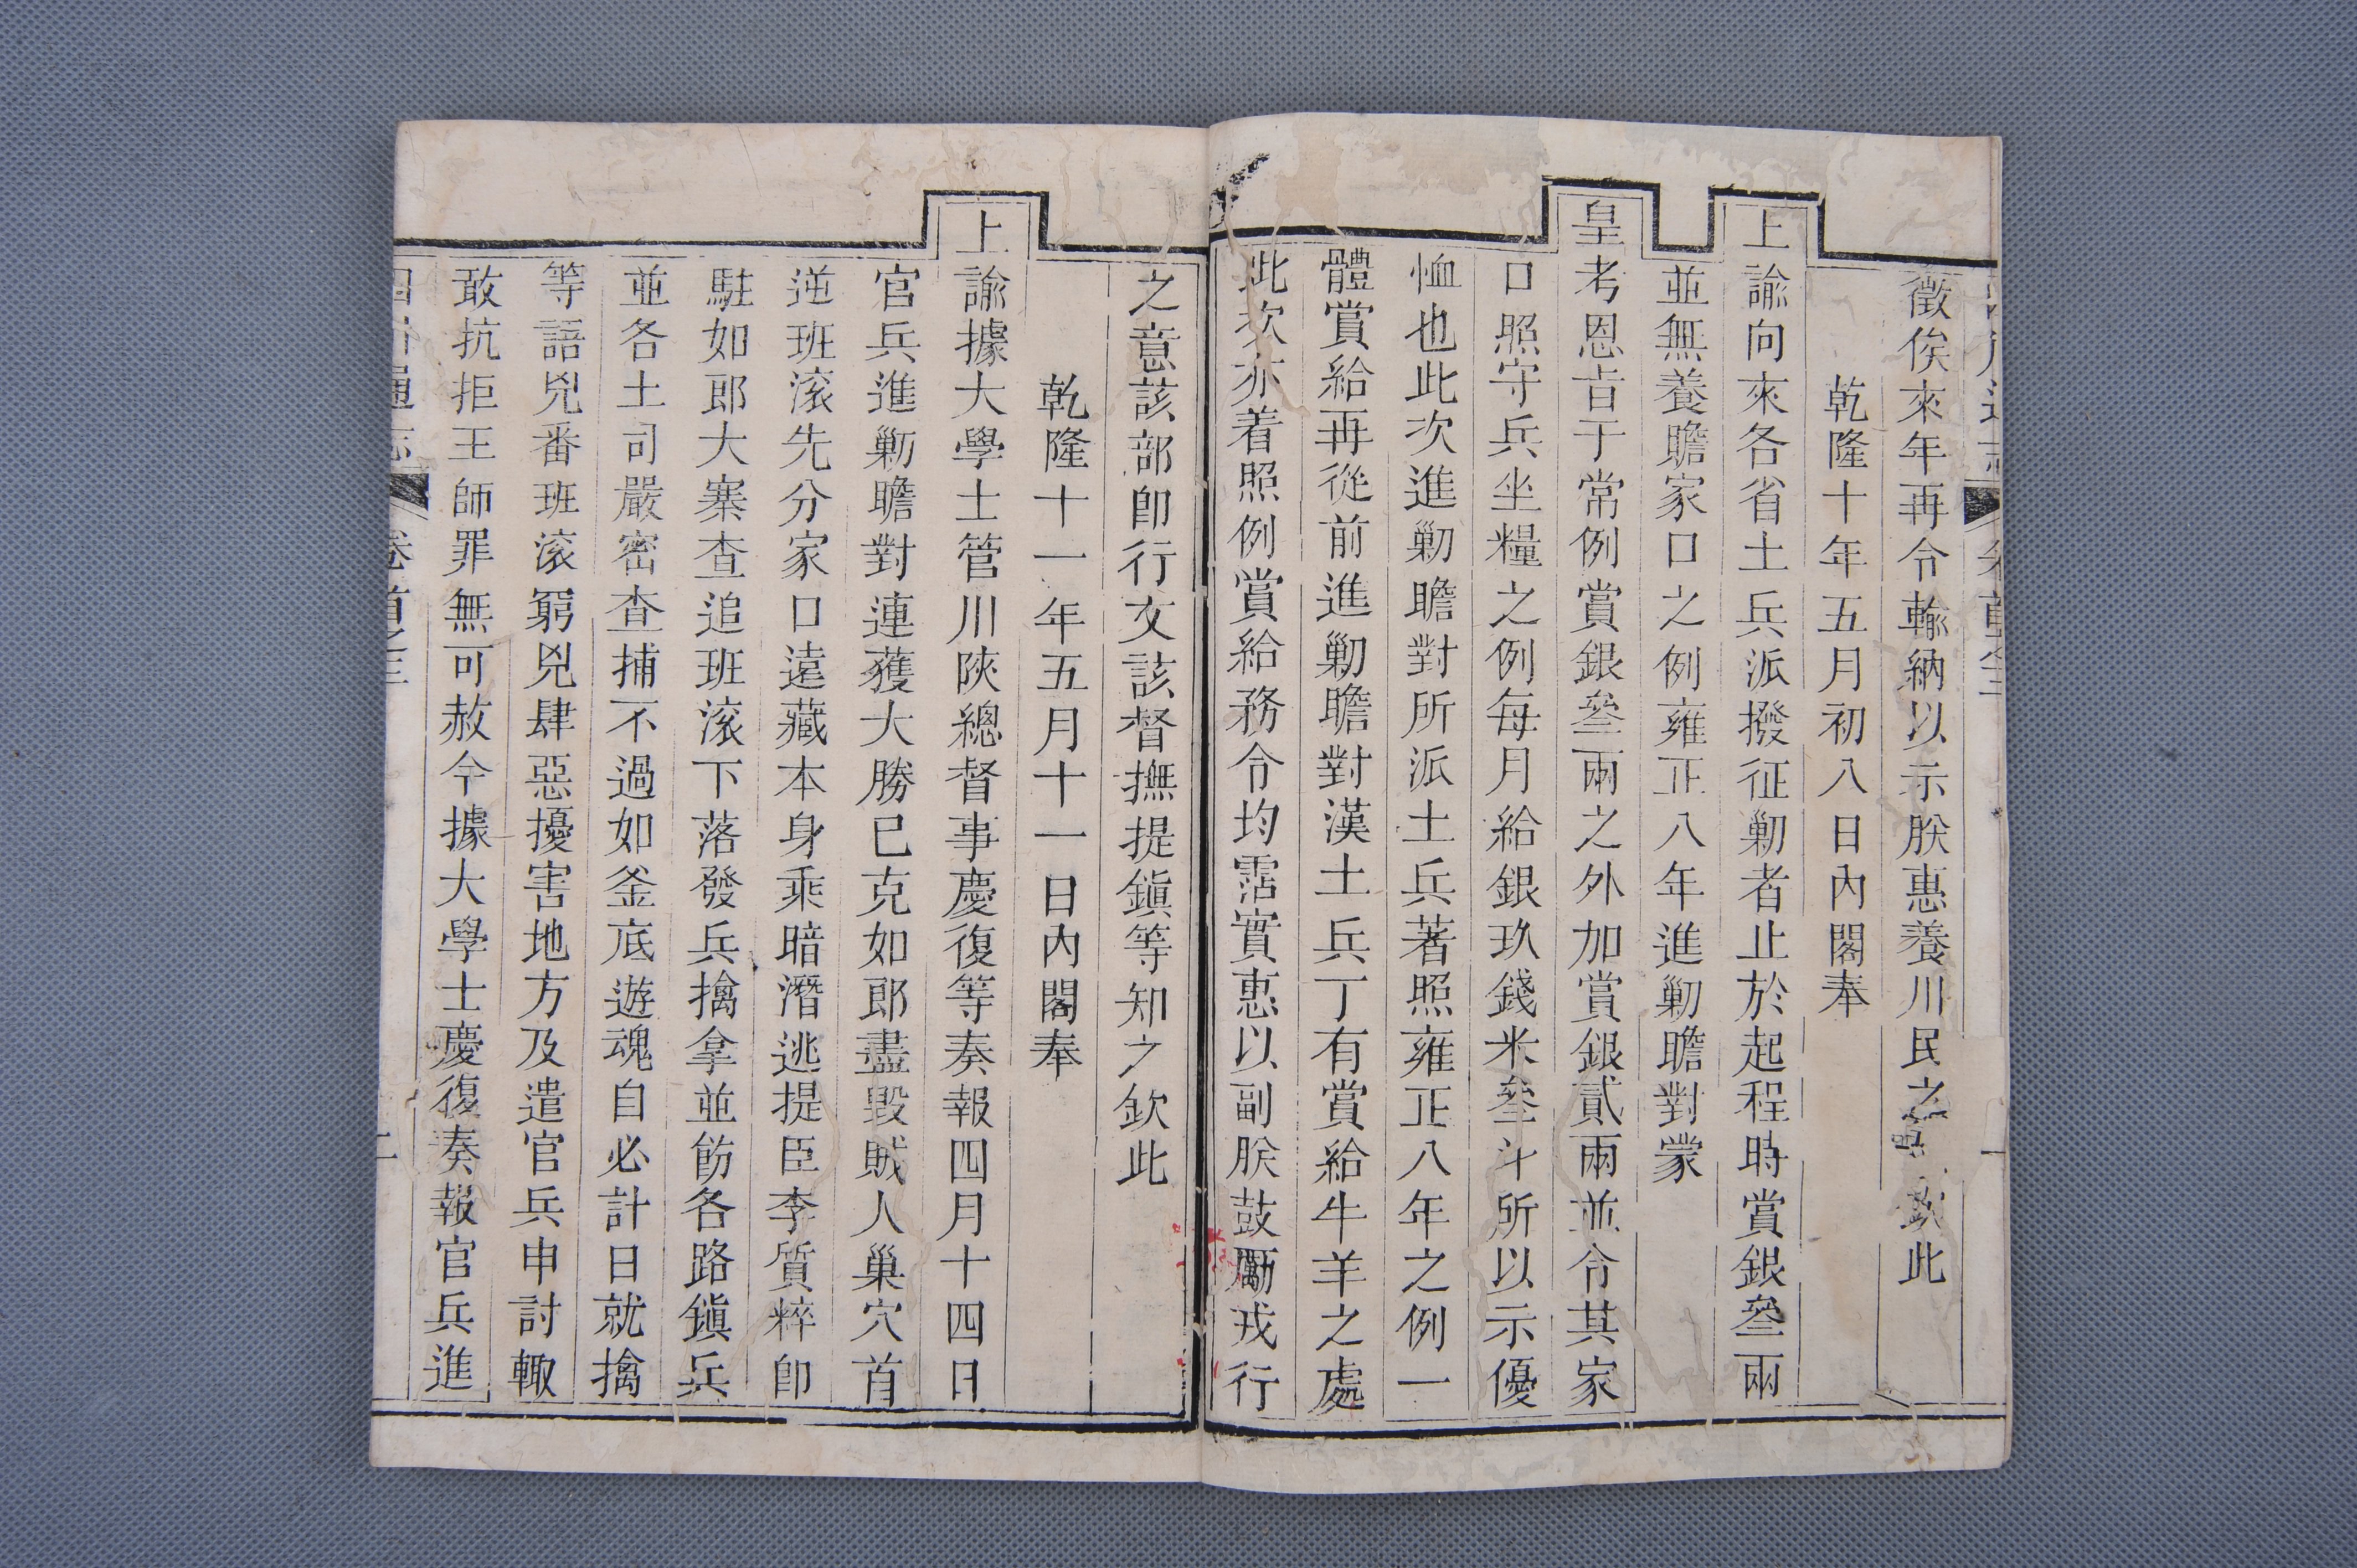 徵俟來年再令輸納以示朕惠養川民之 欽此
乾隆十年五月初八日內閣奉
上諭向來各省土兵派撥征勦者止於起程時賞銀叁兩
並無養贍家口之例雍正八年進勦瞻對蒙
皇考恩㫖于常例賞銀叁兩之外加賞銀貳兩並令其家
口照守兵坐糧之例每月給銀玖錢米叁斗所以示優
恤也此次進勦瞻對所派土兵著照雍正八年之例一
體賞給再從前進勦瞻對漢土兵丁有賞給牛羊之處
此次亦着照例賞給務令均霑實惠以副朕鼓勵戎行
之意該部卽行文該督撫提鎭等知之欽此
乾隆十一年五月十一日內閣奉
上諭據大學士管川陝總督事慶復等奏報四月十四日
官兵進勦瞻對連獲大勝已克如郎盡毀賊人巢穴首
逆班滚先分家口遠藏本身乘暗潛逃提臣李質粹卽
駐如郎大寨查追班滚下落發兵擒拿並飭各路鎭兵
並各土司嚴密查捕不過如釜底遊魂自必計日就擒
等語兇番班滚窮兇肆惡擾害地方及遣官兵申討輙
敢抗拒王師罪無可赦今據大學士慶復奏報官兵進
四川通志 卷首之三